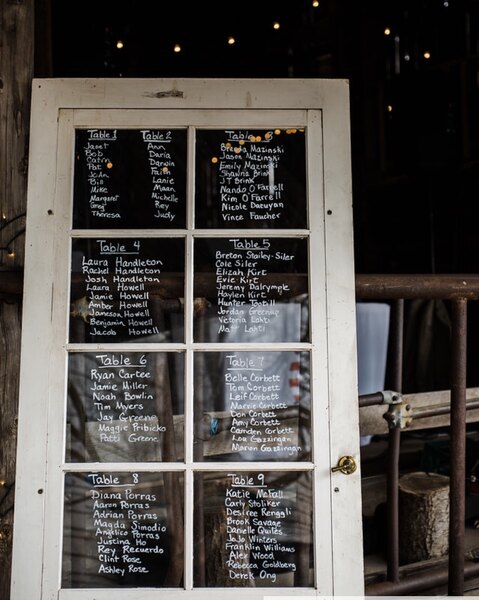 Table 1
Janet
Bob
Cathy
Pat
John
Bill
Mike
Margaret
Greg
Theresa
Table 2
Ann
Daria
Darwin
Faith
Lanie
Maan
Michelle
Rey
Judy
Table 3
Brenda Mazinski
Jason Mazinski
Emily Mazinski
Shavina Brink
JT Brink
Nando O'Farrell
Kim O'Farrell
Nicole Daeuyan
Vince Faucher
Table 4
Laura Handleton
Rachel Handleton
Josh Handleton
Laura Howell
Jamie Howell
Amber Howell
Jameson Howell
Benjamin Howell
Jacob Howell
Table 5
Breton Stailey-Siler
Cole Siler
Elizah Kirt
Evie Kirt
Jeremy Dalrymple
Haylen Kirt
Hunter Tastill
Jordan Greenup
Victoria Lahti
Matt Lahti
Table 6
Ryan Cartee
Jamie Miller
Noah Bowlin
Tim Myers
Jay Greene
Maggie Pribicko
Patti Greene
Table 7
Belle Corbett
Tom Corbett
Leif Corbett
Norrie Corbett
Don Corbett
Amy Corbett
Camden Corbett
Lou Gazzingan
Marion Gazzingan
Table 8
Diana Porras
Aaron Porras
Adrian Porras
Magda Simodio
Angelica Porras
Justina Ho
Rey Recuerdo
Clint Rose
Ashley Rose
Table 9
Katie McFall
Carly Stoliker
Desiree Rengali
Brook Savage
Danielle Quiles
JoJo Winters
Franklin Williams
Alex Wood
Rebecca Goldberg
Derek Ong